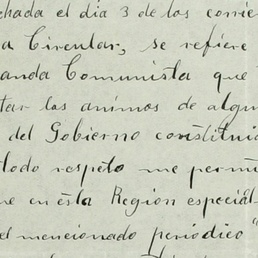 chada el dia 3 de los corrie
a Circular, se refiere
anda Comunista que
tar los animos de algu
del Gobierno constitui
todo respeto me permi
ue en esta Region especial
el mencionado periodico "